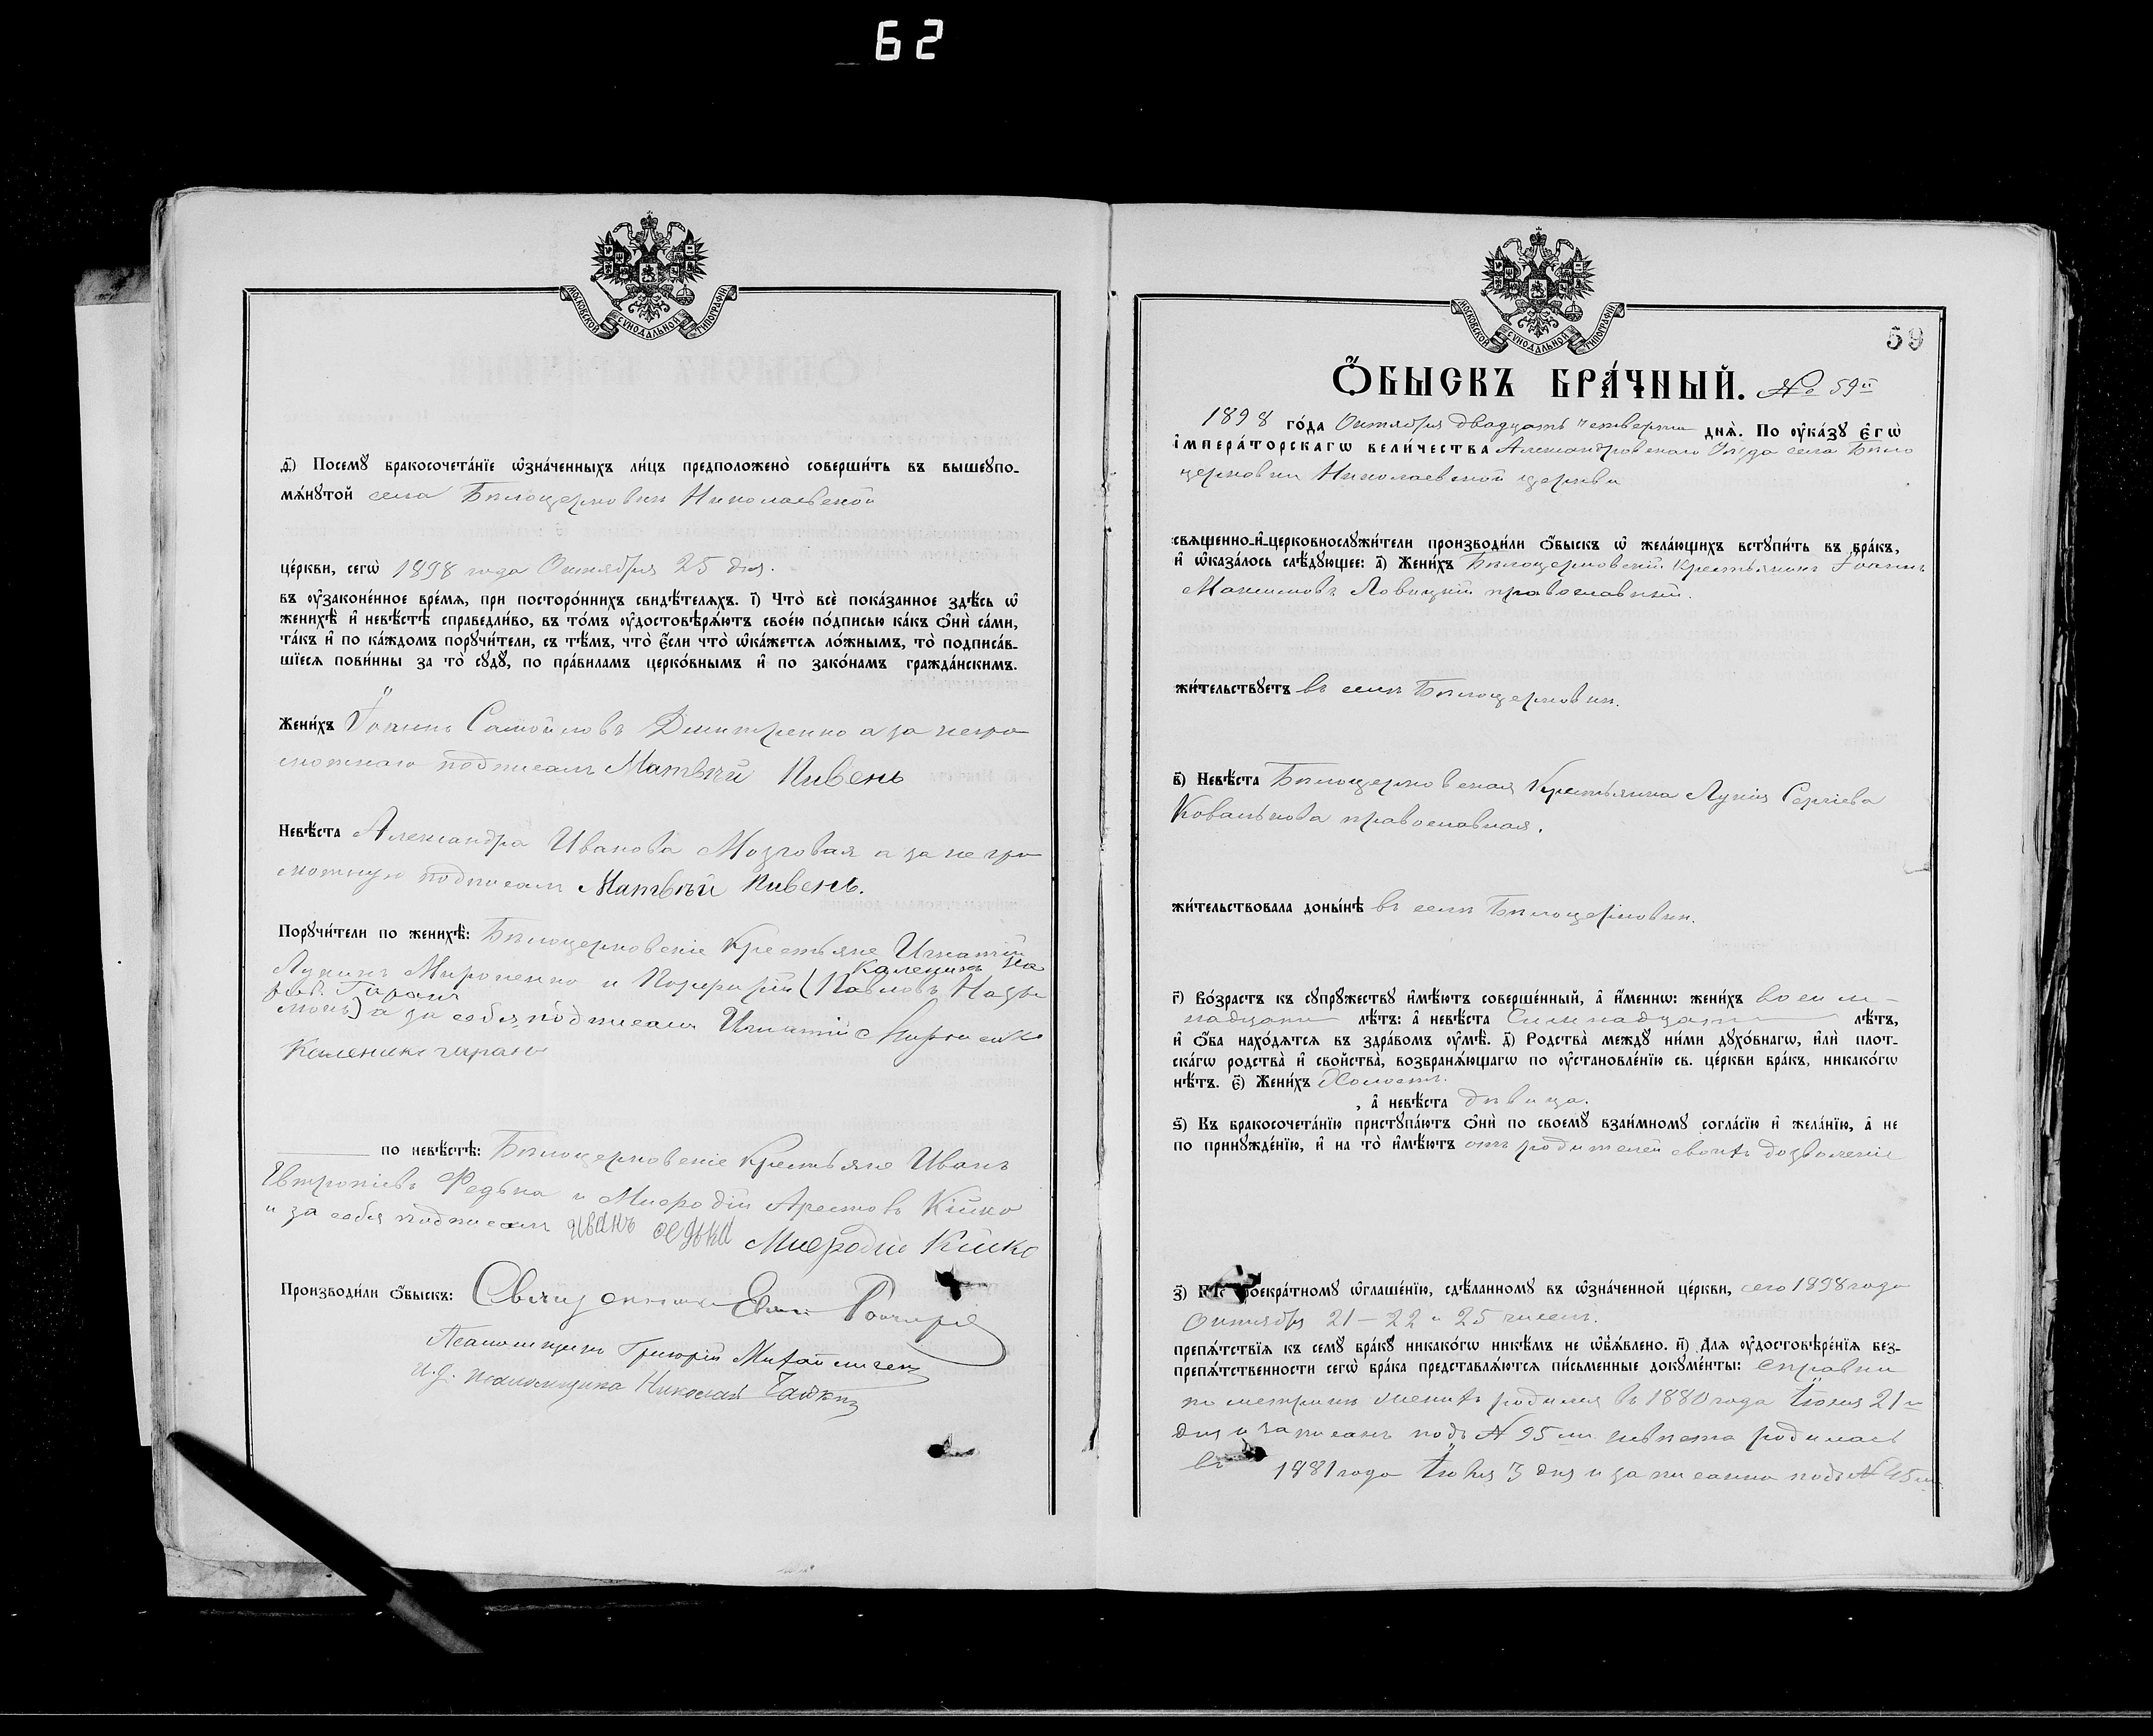 62
МОСКОВСКОЙ СѴНОДАЛЬНОЙ ТИПОГРАФІИ
ѳ҃) Посемꙋ̀ бракосочета́нїе ѡ҆зна́ченныхъ ли́цъ предположено̀ соверши́ть въ вышеꙋпо-
мѧ́нꙋтой села Бѣлоцерковки Николаевской
це́ркви, сегѡ̀ 1898 года Октября 25 дня.
въ ᲂу҆зако́ненное вре́мѧ, при посторо́ннихъ свидѣ́телѧхъ. і҃) Что̀ всѐ пока́занное здѣ́сь ѡ҆
женихѣ̀ и҆ невѣ́стѣ справедли́во, въ то́мъ ᲂу҆достовѣрѧ́ютъ свое́ю по́дписью ка́къ ѻ҆нѝ са́ми,
та́къ и҆ по ка́ждомъ порꙋчи́тели, съ тѣ́мъ, что̀ є҆́сли что̀ ѡ҆ка́жетсѧ ло́жнымъ, то̀ подписа́в-
шїесѧ пови́нны за то̀ сꙋдꙋ̀, по пра́виламъ церко́внымъ и҆ по зако́намъ гражда́нскимъ.
Жени́хъ Іоаннъ Самойловъ Дмитренко а за негра
мотнаго подписалъ Матвѣй Пивень
Невѣ́ста Александра Иванова Мозговая а за негра
мотную подписалъ Матвѣй Пивень.
Порꙋчи́тели по женихѣ̀: Бѣлоцерковскіе Крестьяне Игнатій
Каленикъ
Лукинъ Мироненко и Порфирій (Павловъ
а за себя подписали Игнатій Мироненко
Каленикъ гаранъ
по невѣ́стѣ: Бѣлоцерковскіе Крестьяне Иванъ
Евтропіевъ Федька и Мефодій Арестовъ Кійко
и за себя подписали Иванъ Федька Мефодій Кійко
Производи́ли ѻ҆́быскъ: Священникъ
Псаломщикъ Григорій
и. д. псаломщика Николай
МОСКОВСКОЙ СѴНОДАЛЬНОЙ ТИПОГРАФІИ
59
Ѻ҆́БЫСКЪ БРА́ЧНЫЙ. № 59й
1898 го́да Октября двадцать четвертаго днѧ̀. По ᲂу҆ка́зꙋ є҆гѡ̀
і҆мпера́торскагѡ вели́чества Александровскаго Уѣзда села Бѣло
церковки Николаевской церкви
свѧщенно-и҆-церковнослꙋжи́тели производи́ли ѻ҆́быскъ ѡ҆ жела́ющихъ встꙋпи́ть въ бра́къ,
и҆ ѡ҆каза́лось слѣ́дꙋющее: а҃) Жени́хъ Бѣлоцерковскій крестьянинъ Іоаннъ
Максимовъ Ловицкій православный.
жи́тельствꙋетъ въ селѣ Бѣлоцерковкѣ.
в҃) Невѣ́ста Бѣлоцерковская Крестьянка Лукія Сергіева
Ковалькова православная.
жи́тельствовала доны́нѣ въ селѣ Бѣлоцерковкѣ.
г҃) Во́зрастъ къ сꙋпрꙋ́жествꙋ и҆мѣ́ютъ соверше́нный, а҆ и҆́меннѡ: жени́хъ восем-
надцати лѣ́тъ: а҆ невѣ́ста Семнадцати лѣ́тъ,
и҆ ѻ҆́ба нахо́дѧтсѧ въ здра́вомъ ᲂу҆мѣ̀. д҃) Родства̀ междꙋ̀ ни́ми дꙋхо́внагѡ, и҆лѝ плот-
ска́гѡ родства̀ и҆ свойства̀, возбранѧ́ющагѡ по ᲂу҆становле́нїю св. це́ркви бра́къ, никако́гѡ
нѣ́тъ. є҃) Жени́хъ Холостъ.
, а҆ невѣ́ста дѣвица.
ѕ҃) Къ бракосочета́нїю пристꙋпа́ютъ ѻ҆нѝ по своемꙋ̀ взаи́мномꙋ согла́сїю и҆ жела́нїю, а҆ не
по принꙋжде́нїю, и҆ на то̀ и҆мѣ́ютъ отъ родителей своихъ дозволеніе
з҃) троекра́тномꙋ ѡ҆глаше́нїю, сдѣ́ланномꙋ въ ѡ҆зна́ченной це́ркви, сего 1898 года
Октября 21 – 22 и 25 чиселъ.
препѧ́тствїѧ къ семꙋ̀ бра́кꙋ никако́гѡ никѣ́мъ не ѡ҆б̾ѧ́влено. и҃) Длѧ ᲂу҆достовѣре́нїѧ без-
препѧ́тственности сегѡ̀ бра́ка представлѧ́ютсѧ пи́сьменные докꙋме́нты: справки
по метрикѣ женихъ родился въ 1880 года Іюля 21го
дня и записанъ подъ № 95мъ невѣста родилась
въ 1881 года Іюня 3 дня и записана подъ № 45мъ